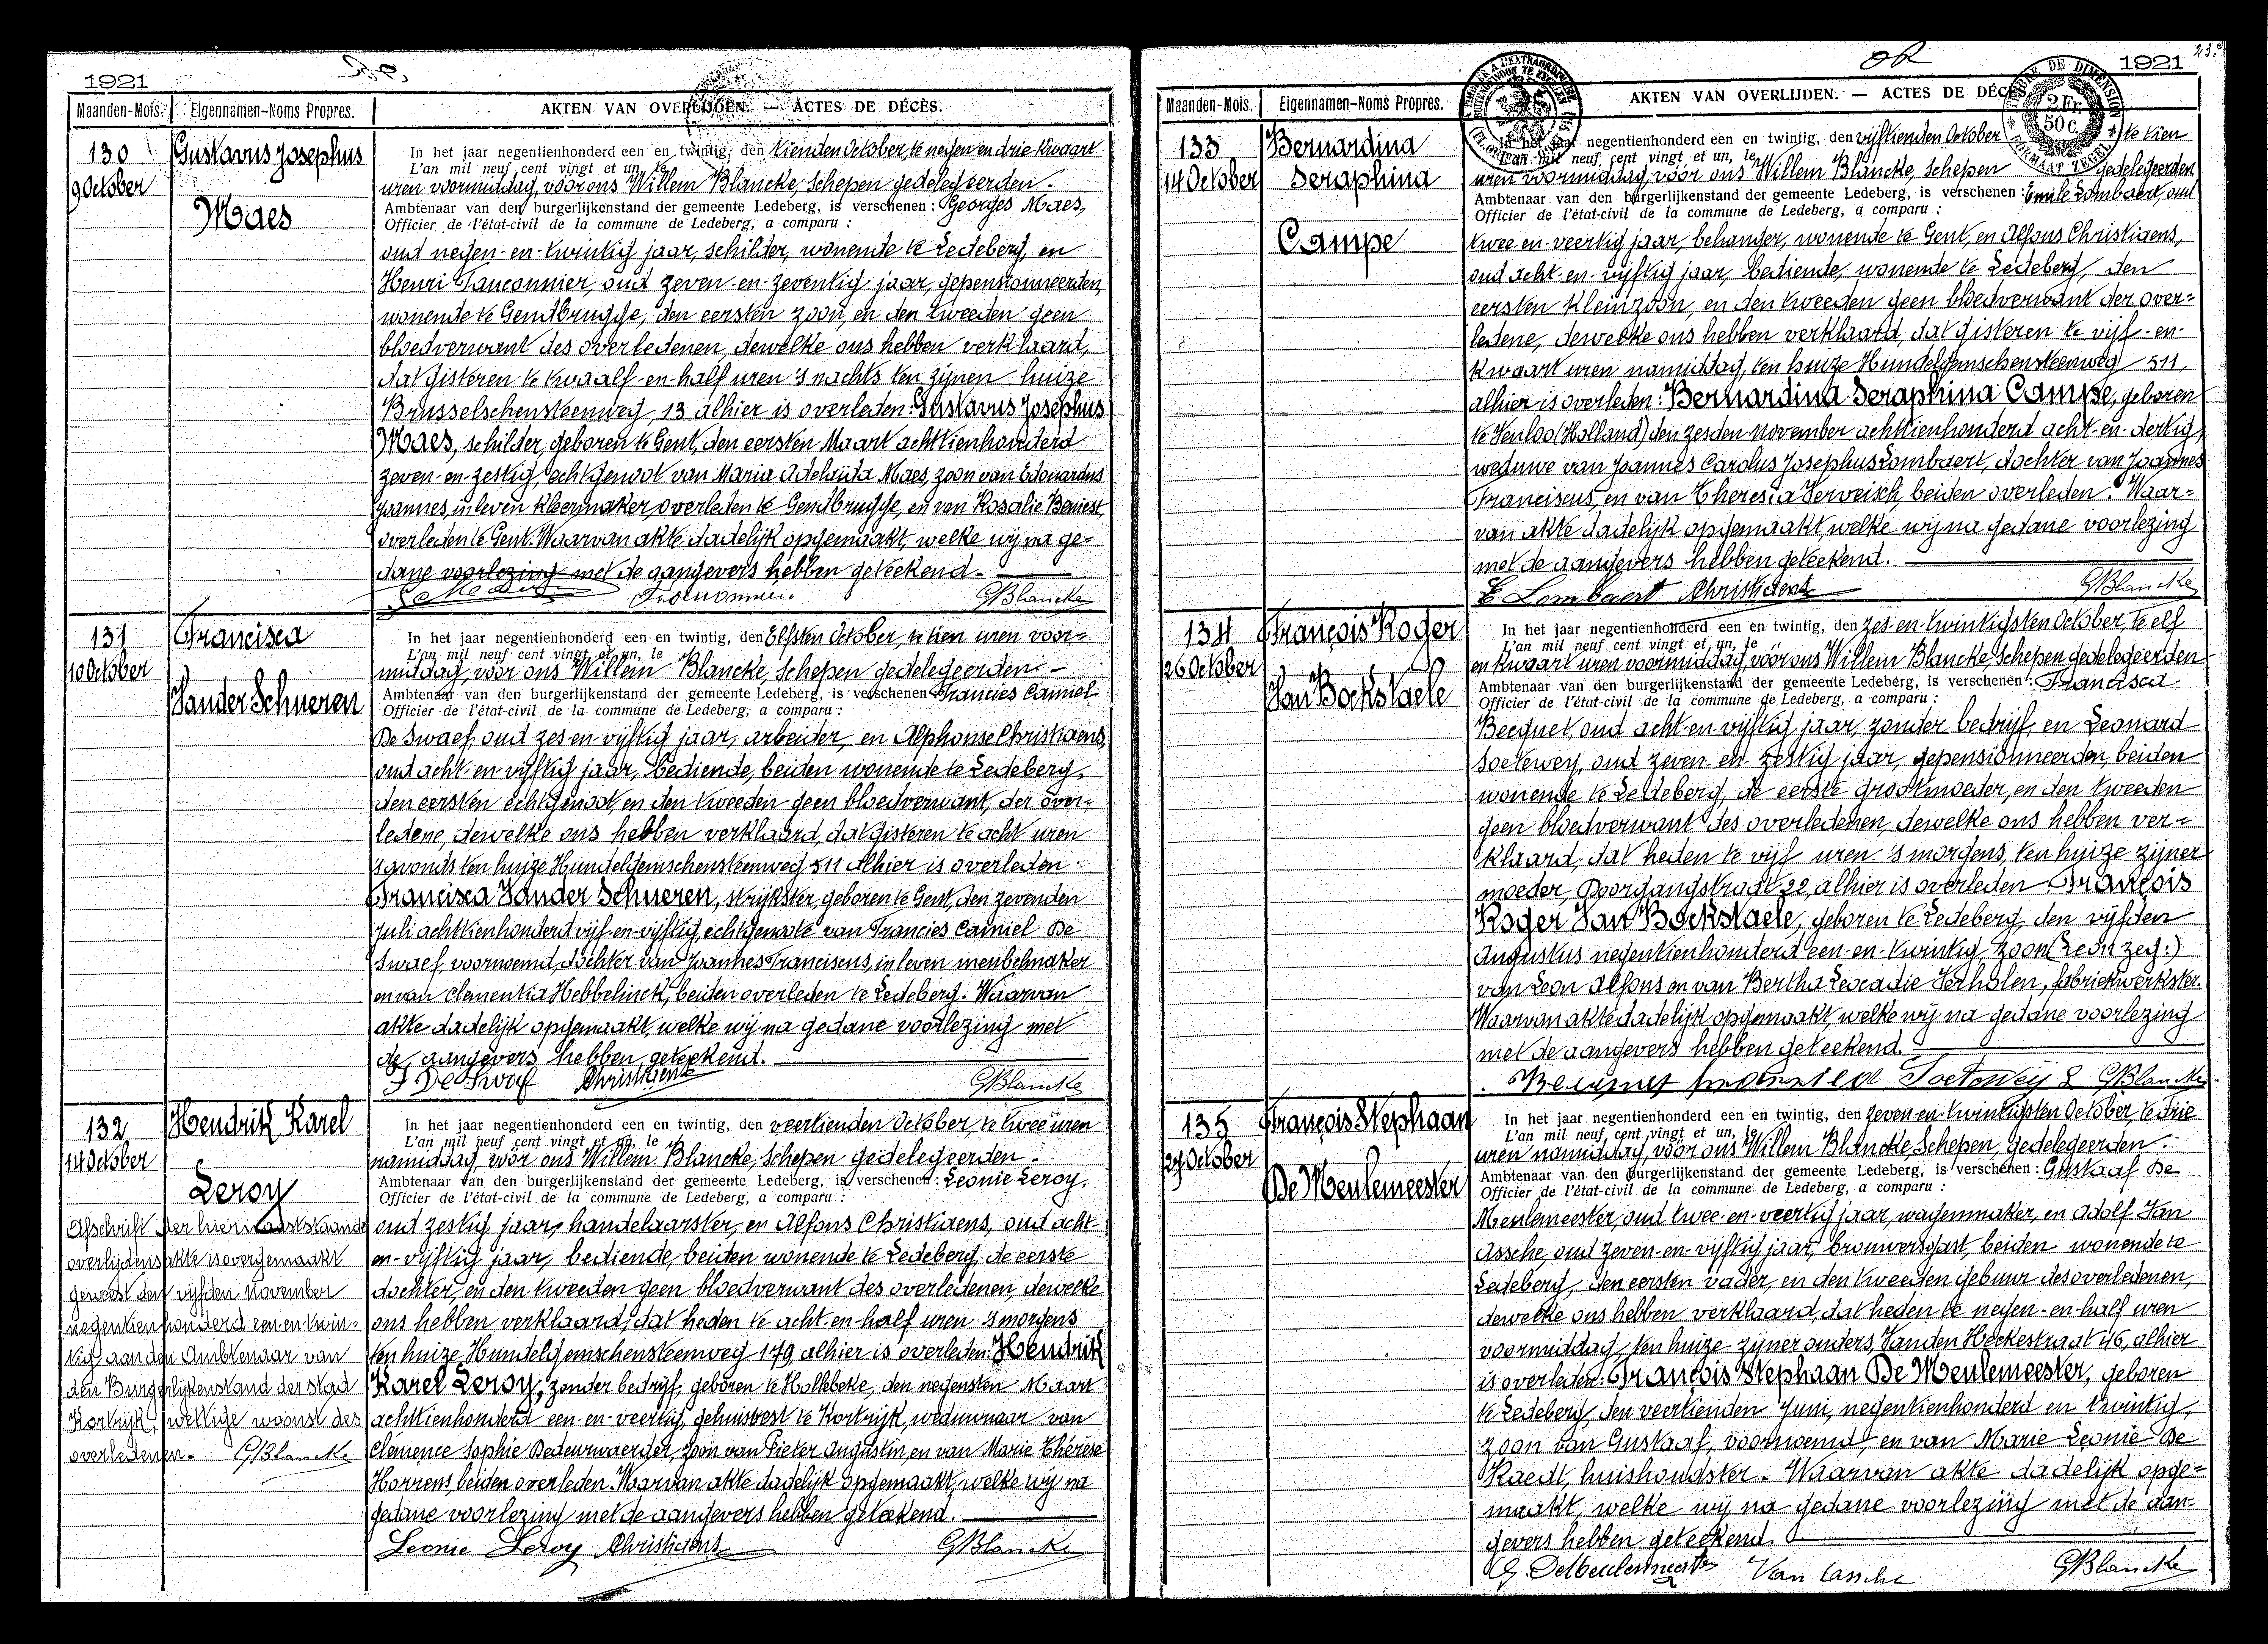 1921
Maanden-Mois. Eigennamen-Noms Propres. AKTEN VAN OVERLIJDEN. — ACTES DE DÉCÈS.
130
9 October
Gustavus Josephus
Maes
In het jaar negentienhonderd een en twintig, den tienden October, te negen en drie kwaart
L'an mil neuf cent vingt et un, le
uren voormiddag, voor ons Willem Blancke, Schepen gedelegeerden.
Ambtenaar van den burgerlijkenstand der gemeente Ledeberg, is verschenen : Georges Maes,
Officier de l'état-civil de la commune de Ledeberg, a comparu :
oud negen-en-twintig jaar, schilder, wonende te Ledeberg, en
Henri Tanconnier, oud zeven-en-zeventig jaar, gepensionneerden,
wonende te Gendbrugge, den eersten zoon, en den tweeden geen
bloedverwant des overledenen, dewelke ons hebben verklaard,
dat gisteren te twaalf-en-half uren 's nachts ten zijnen huize
Brusselschensteenweg, 13 alhier is overleden: Gustavus Josephus
Maes, schilder, geboren te Gent, den eersten Maart achttienhonderd
zeven-en-zestig, echtgenoot van Maria Adelaida Maes, zoon van Edouardus
Joannes, in leven kleermaker, overleden te Gendbrugge, en van Rosalie Beniest,
overleden te Gent. Waarvan akte dadelijk opgemaakt, welke wij na ge-
dane voorlezing met de aangevers hebben geteekend.
GBlancke
131
10 October
Francisca
Vander Schueren
In het jaar negentienhonderd een en twintig, den Elfsten October, te tien uren voor-
L'an mil neuf cent vingt et un, le
middag, voor ons Willem Blancke, Schepen gedelegeerden.
Ambtenaar van den burgerlijkenstand der gemeente Ledeberg, is verschenen Francies Camiel
Officier de l'état-civil de la commune de Ledeberg, a comparu :
De Swaef, oud zes-en-vijftig jaar, arbeider, en Alphonse Christiaens,
oud acht-en-vijftig jaar, bediende, beiden wonende te Ledeberg,
den eersten echtgenoot, en den tweeden geen bloedverwant, der over-
ledene, dewelke ons hebben verklaard, dat gisteren te acht uren
's avonds ten huize Hundelgemschensteenweg 511 alhier is overleden:
Francisca Vander Schueren, strijkster, geboren te Gent, den zevenden
Juli achttienhonderd vijf-en-vijftig, echtgenote van Francies Camiel De
Swaef, voornoemd, dochter van Joannes Franciscus, in leven meubelmaker
en van Clementia Hebbelinck, beiden overleden te Ledeberg. Waarvan
akte dadelijk opgemaakt, welke wij na gedane voorlezing met
de aangevers hebben geteekend.
F De Swaef Christiaens GBlancke
132
14 October
Hendrik Karel
Leroy
Afschrift der hiernaaststaande
overlijdensakte is overgemaakt
geweest den vijfden November
negentienhonderd een-en-twin-
tig aan den Ambtenaar van
den Burgerlijkenstand der stad
Kortrijk, wettige woonst des
overledenen. GBlancke
In het jaar negentienhonderd een en twintig, den veertienden October, te twee uren
L'an mil neuf cent vingt et un, le
namiddag, voor ons Willem Blancke, Schepen gedelegeerden.
Ambtenaar van den burgerlijkenstand der gemeente Ledeberg, is verschenen : Leonie Leroy,
Officier de l'état-civil de la commune de Ledeberg, a comparu :
oud zestig jaar, handelaarster, en Alfons Christiaens, oud acht-
en-vijftig jaar, bediende, beiden wonende te Ledeberg, de eerste
dochter, en den tweeden geen bloedverwant des overledenen, dewelke
ons hebben verklaard, dat heden te acht-en-half uren 's morgens
ten huize Hundelgemschensteenweg 179 alhier is overleden: Hendrik
Karel Leroy, zonder bedrijf, geboren te Hollebeke, den negensten Maart
achttienhonderd een-en-veertig, gehuisvest te Kortrijk, weduwnaar van
Clémence Sophie Dedeurwaerder, zoon van Pieter Augustin, en van Marie Thérèse
Horrens, beiden overleden. Waarvan akte dadelijk opgemaakt, welke wij na
gedane voorlezing met de aangevers hebben geteekend.
Leonie Leroy Christiaens GBlancke
1921
Maanden-Mois. Eigennamen-Noms Propres. AKTEN VAN OVERLIJDEN. — ACTES DE DÉCÈS.
TIMBRE DE DIMENSION
2 Fr.
50 c.
FORMAAT ZEGEL
133
14 October
Bernardina
Seraphina
Campe
In het jaar negentienhonderd een en twintig, den vijftienden October te tien
L'an mil neuf cent vingt et un, le
uren voormiddag, voor ons Willem Blancke, Schepen gedelegeerden
Ambtenaar van den burgerlijkenstand der gemeente Ledeberg, is verschenen : Emile Lombaert, oud
Officier de l'état-civil de la commune de Ledeberg, a comparu :
twee-en-veertig jaar, behanger, wonende te Gent, en Alfons Christiaens,
oud acht-en-vijftig jaar, bediende, wonende te Ledeberg, den
eersten kleinzoon, en den tweeden geen bloedverwant der over-
ledene, dewelke ons hebben verklaard, dat gisteren te vijf-en-
kwaart uren namiddag, ten huize Hundelgemschensteenweg 511,
alhier is overleden: Bernardina Seraphina Campe, geboren
te Venloo (Holland) den zesden November achttienhonderd acht-en-dertig,
weduwe van Joannes Carolus Josephus Lombaert, dochter van Joannes
Franciscus, en van Theresia Verveisch, beiden overleden. Waar-
van akte dadelijk opgemaakt, welke wij na gedane voorlezing
met de aangevers hebben geteekend.
E. Lombaert Christiaens GBlancke
134
26 October
François Roger
Van Bockstaele
In het jaar negentienhonderd een en twintig, den zes-en-twintigsten October, te elf
L'an mil neuf cent vingt et un, le
en kwaart uren voormiddag, voor ons Willem Blancke, Schepen gedelegeerden
Ambtenaar van den burgerlijkenstand der gemeente Ledeberg, is verschenen : Francisca
Officier de l'état-civil de la commune de Ledeberg, a comparu :
Becquet, oud acht-en-vijftig jaar, zonder bedrijf, en Leonard
Soetewey, oud zeven-en-zestig jaar, gepensionneerden, beiden
wonende te Ledeberg, de eerste grootmoeder, en den tweeden
geen bloedverwant des overledenen, dewelke ons hebben ver-
klaard, dat heden te vijf uren 's morgens, ten huize zijner
moeder, Doorgangstraat 22, alhier is overleden François
Roger Van Bockstaele, geboren te Ledeberg, den vijfden
Augustus negentienhonderd een-en-twintig, zoon (Leon zeg:)
van Leon Alfons en van Bertha Leocadie Verholen, fabriekwerkster.
Waarvan akte dadelijk opgemaakt, welke wij na gedane voorlezing
met de aangevers hebben geteekend.
Soetewey L GBlancke
135
27 October
François Stephaan
De Meulemeester
In het jaar negentienhonderd een en twintig, den zeven-en-twintigsten October te drie
L'an mil neuf cent vingt et un, le
uren namiddag, voor ons Willem Blancke, Schepen, gedelegeerden.
Ambtenaar van den burgerlijkenstand der gemeente Ledeberg, is verschenen : Gustaaf De
Officier de l'état-civil de la commune de Ledeberg, a comparu :
Meulemeester, oud twee-en-veertig jaar, wagenmaker, en Adolf Van
Assche, oud zeven-en-vijftig jaar, brouwersgast, beiden wonende te
Ledeberg, den eersten vader, en den tweeden gebuur des overledenen,
dewelke ons hebben verklaard, dat heden te negen-en-half uren
voormiddag, ten huize zijner ouders, Vanden Heckestraat 46, alhier
is overleden: François Stephaan De Meulemeester, geboren
te Ledeberg, den veertienden Juni, negentienhonderd en twintig,
zoon van Gustaaf, voornoemd, en van Marie Leonie De
Raedt, huishoudster. Waarvan akte dadelijk opge-
maakt, welke wij na gedane voorlezing met de aan-
gevers hebben geteekend.
G. DeMeulemeester Van Assche GBlancke